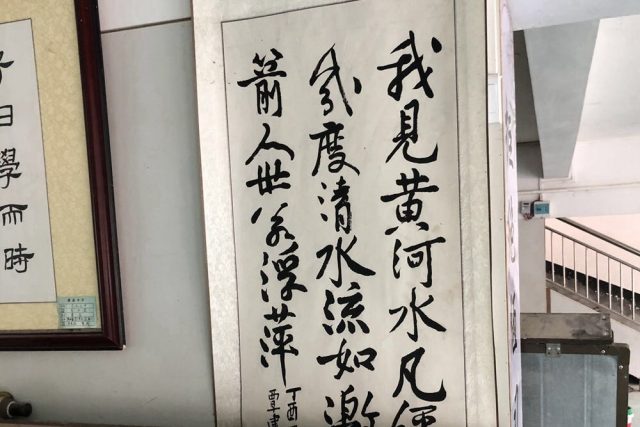 我見黄河水凡經
幾度清水流如激
箭人世若浮萍
丁酉
子曰學而時